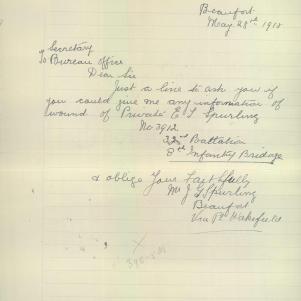 Beaufort
May 28th 1918
Secretary
To Bureau Officer
Dear Sir
Just a line to ask you if
you could give me any information of
wound of Private E L Spurling
No 3912
32nd Battalion
8th Infantry Bridage
& oblige Your Faithfully
Mr J L Spurling
Beaufort
Via Pt Wakefield